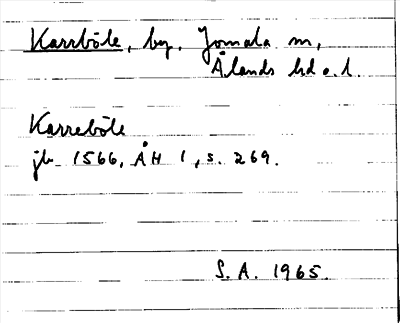 Karrböle, by, Jomala sn,
Ålands hd o. l.
Karreböle
jb 1566, ÅH 1, s. 269.
S. A. 1965.